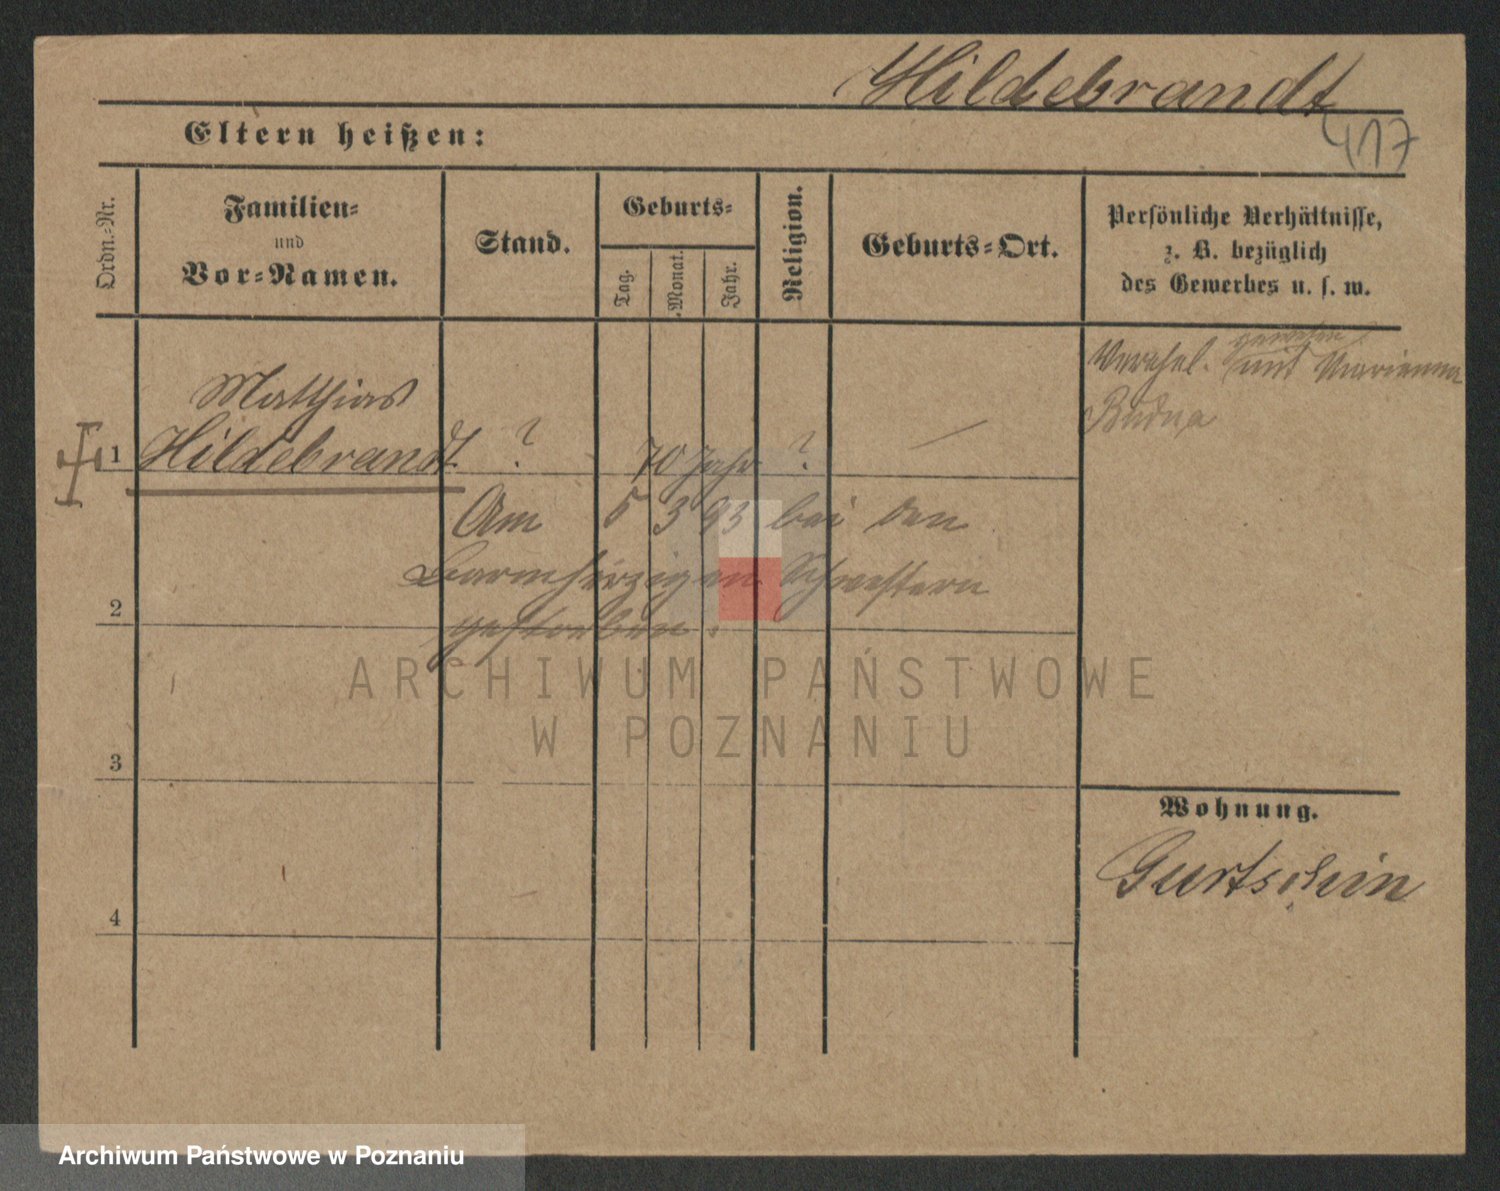 Hildebrandt
417
Eltern heißen:
Ordn.-Nr.
Familien-
und
Vor-Namen.
Stand.
Geburts-
Tag.
Monat.
Jahr.
Religion.
Geburts-Ort.
Persönliche Verhältnisse,
z. B. bezüglich
des Gewerbes u. s. w.
1
Matthias
Hildebrandt
?
70 Jahr
?
—
gewesen
Verehel. mit Marianna
Am 5 3 93 bei den
Barmherzigen Schwestern
gestorben.
2
3
4
Wohnung.
Gurtschin
ARCHIWUM PAŃSTWOWE
W POZNANIU
Archiwum Państwowe w Poznaniu